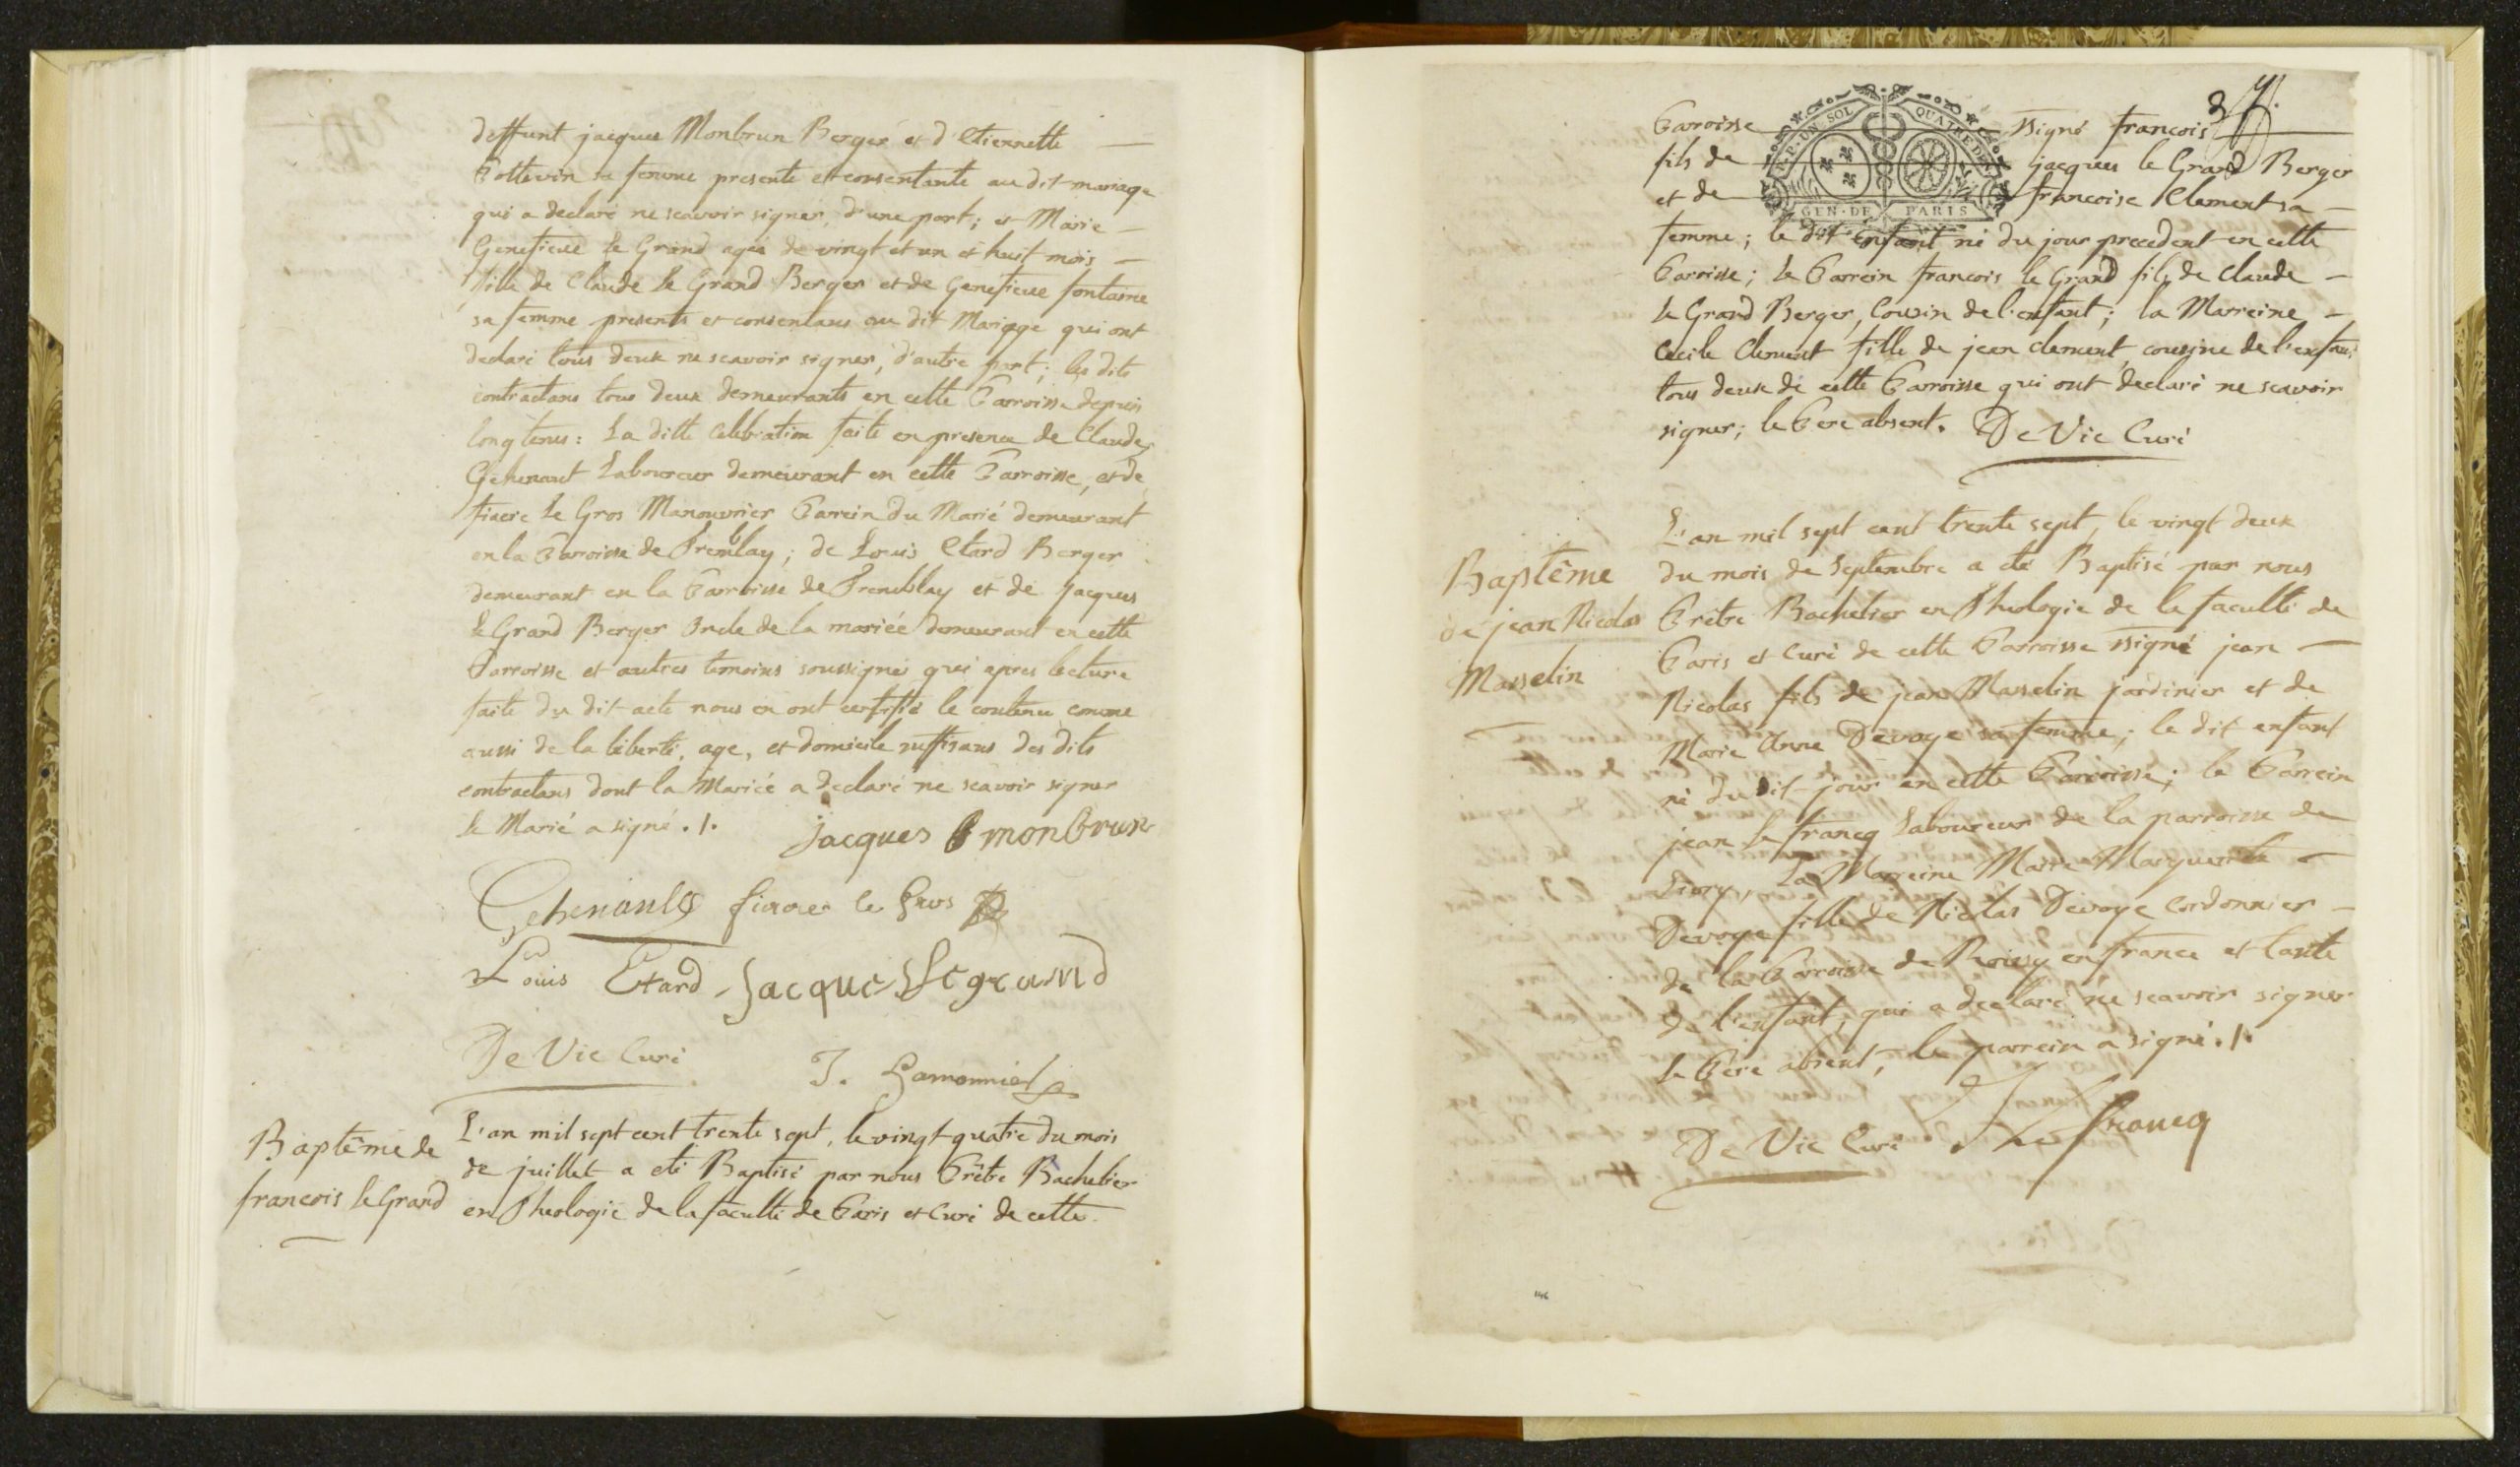 deffunt jacques Monbrun Berger et d'Etiennette —
Pottevin sa femme presente et consentante au dit mariage
qui a declaré ne scavoir signer, d'une part; et Marie —
Genefieue le Grand agée de vingt et un et huit mois —
fille de Claude le Grand Berger et de Genefieue fontaine
sa femme presents et consentans au dit Mariage qui ont
declaré tous deux ne scavoir signer, d'autre part; les dits
contractans tous deux demeurants en cette Parroisse depuis
longtems: La ditte Celebration faite en presence de Claude
Gehenault Laboureur demeurant en cette Parroisse, et de
fiacre le Gros Manouvrier Parrein du Marié demeurant
en la Parroisse de Tremblay; de Louis Etard Berger
demeurant en la Parroisse de Tremblay et de jacques
le Grand Berger Oncle de la mariée demeurant en cette
Parroisse et autres temoins soussignés qui apres lecture
faite du dit acte nous en ont certifié le contenu comme
aussi de la liberté, age, et domicile suffisans des dits
contractans dont la Mariée a declaré ne scavoir signer
le Marié a signé ./. jacques monbrun
Gehenault fiacre le Gros
Louis Etard Jacque Legrand
De Vic Curé
Baptême de
francois le Grand
L'an mil sept cent trente sept, le vingt quatre du mois
de juillet a eté Baptisé par nous Prêtre Bachelier
en Theologie de la faculté de Paris et Curé de cette
Parroisse ssigné francois
fils de jacques le Grand Berger
et de francoise Clement sa —
G.P. UN SOL QUATRE DE.
GEN · DE PARIS
femme; le dit enfant né du jour precedent en cette
Parroisse; le Parrein francois le Grand fils de Claude —
le Grand Berger, Cousin de l'enfant; la Marreine —
Cecile Clement fille de jean clement, cousine de l'enfant
tous deux de cette Parroisse qui ont declaré ne scavoir
signer; le Pere absent. De Vic Curé
Baptême
de jean Nicolas
Masselin
L'an mil sept cent trente sept, le vingt deux
du mois de Septembre a eté Baptisé par nous
Prêtre Bachelier en Theologie de la faculté de
Paris et Curé de cette Parroisse ssigné jean —
Nicolas fils de jean Masselin jardinier et de
Marie Anne Devoye sa femme; le dit enfant
né du dit jour en cette Parroisse; le Parrein
jean le francq Laboureur de la parroisse de
Livry, La Marreine Marie Marguerite —
Devoye fille de Nicolas Devoye Cordonnier —
de la Parroisse de Roissy en france et tante
de l'enfant, qui a declaré ne scavoir signer
le Pere absent, le parrein a signé ./.
De Vic Curé. Le francq